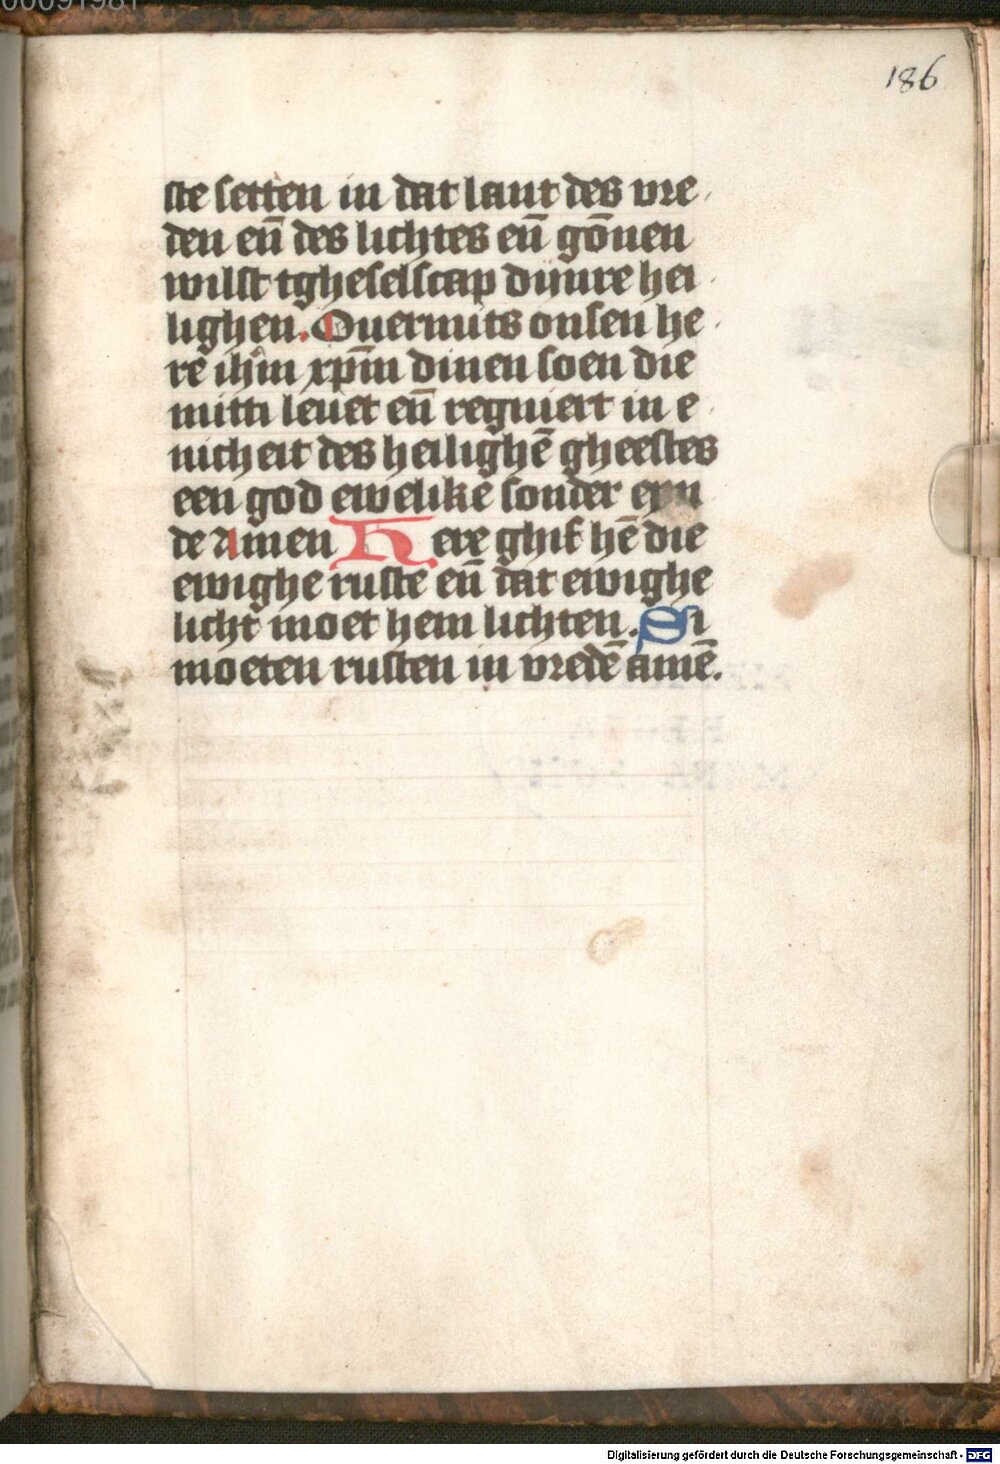 00091981
186
ste setten in dat lant des vre
den eñ des lichtes eñ gōnen
wilst tgheselscap dijnre hei
lighen. Ouermits onsen he
re ihm̄ xpm̄ dinen soen die
mitti leuet eñ regniert in e
nicheit des heilighē gheestes
een god ewelike sonder eyn
de Amen Here ghif hē die
ewighe ruste eñ dat ewighe
licht moet hem lichten. Si
moeten rusten in vredē amē.
Digitalisierung gefördert durch die Deutsche Forschungsgemeinschaft - DFG